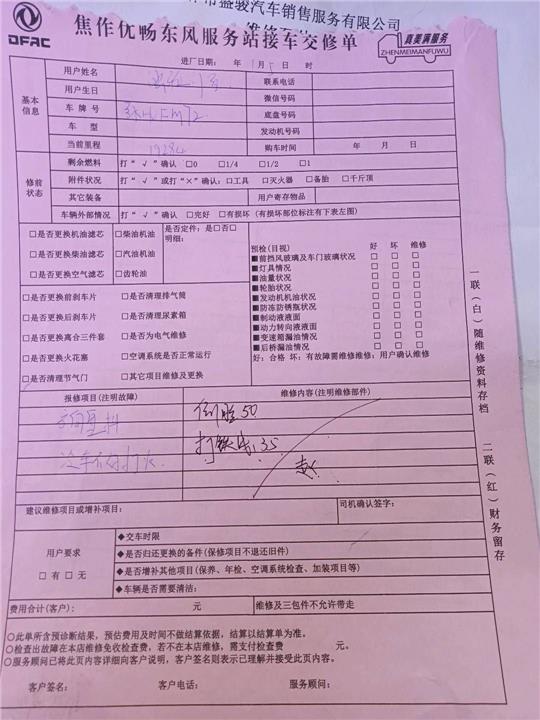 市盛骏汽车销售服务有限公司
DFAC
焦作优畅东风服务站接车交修单
真美满服务
ZHENMEIMANFUWU
进厂日期: 年 1月 5日 时
基本信息
用户姓名 联系电话
用户生日 微信号码
车牌号 底盘号码
车型 发动机号码
当前里程 19284 购车时间 年 月 日
修前状态
剩余燃料 打“√”确认 □0 □1/4 □1/2 □1
附件状况 打“√”或打“×”确认:□工具 □灭火器 □备胎 □千斤顶
其它装备 用户寄存物品
车辆外部情况 打“√”确认 □完好 □有损坏(有损坏部位标注有下表左图)
□是否更换机油滤芯 □柴油机油 是否定件:是□否□
明细:
□是否更换柴油滤芯 □汽油机油
□是否更换空气滤芯 □齿轮油
□是否更换前刹车片 □是否清理排气筒
□是否更换后刹车片 □是否清理尿素箱
□是否更换离合三件套 □是否为电气维修
□是否更换火花塞 □空调系统是否正常运行
□是否清理节气门 □其它项目维修及更换
预检(目视) 好 坏 维修
■前挡风玻璃及车门玻璃状况 □ □ □
■灯具情况 □ □ □
■油量状况 □ □ □
■轮胎状况 □ □ □
■发动机机油状况 □ □ □
■防冻防锈瓶状况 □ □ □
■制动液液面 □ □ □
■动力转向液液面 □ □ □
■变速箱漏油情况 □ □ □
■后桥漏油情况 □ □ □
好:合格 坏:有故障需维修维修:用户确认维修
报修项目(注明故障) 维修内容(注明维修部件)
方向重抖 倒胎 50
冷车不好打火 35
赵
建议维修项目或增补项目: 司机确认签字:
用户要求
□有□无
◆交车时限
◆是否归还更换的备件(保修项目不退还旧件)
◆是否增补其他项目(保养、年检、空调系统检查、加装项目等)
◆车辆是否需要清洁:
费用合计(客户): 元 维修及三包件不允许带走
○此单所含预诊断结果,预估费用及时间不做结算依据,结算以结算单为准。
○检查出故障在本店维修免收检查费,若不在本店维修,需支付检查费 元。
○服务顾问已将此页内容详细向客户说明,客户签名则表示已理解并接受此页内容。
客户签名: 客户电话: 服务顾问:
一联(白)随维修资料存档
二联(红)财务留存